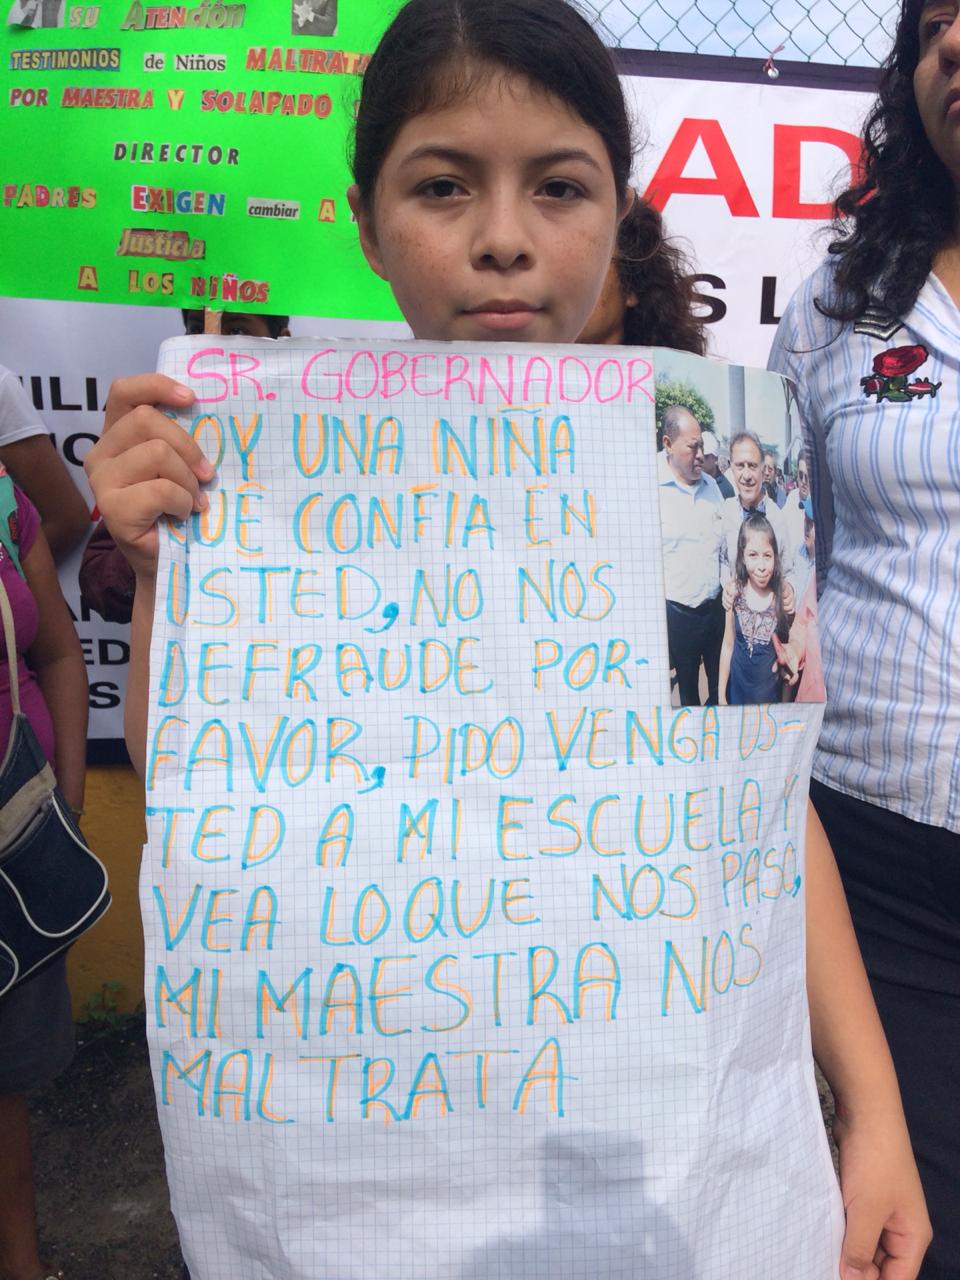 SU Atención
TESTIMONIOS de Niños MALTRATA
POR MAESTRA Y SOLAPADO
DIRECTOR
PADRES EXIGEN cambiar A
Justicia
A LOS NIÑOS
AD
S L
SR. GOBERNADOR
SOY UNA NIÑA
QUE CONFÍA EN
USTED, NO NOS
DEFRAUDE POR-
FAVOR, PIDO VENGA US-
TED A MI ESCUELA Y
VEA LO QUE NOS PASA,
MI MAESTRA NOS
MALTRATA